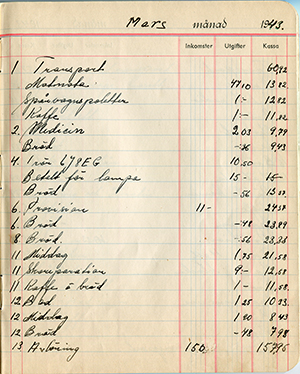 Mars månad 1943.
Inkomster Utgifter Kassa
1 Transport 60,92
Matnota 47,10 13,82
Spårvagnspoletter 1,- 12,82
Kaffe 1,- 11,82
2. Medicin 2,03 9,79
Bröd -,36 9,43
4. 10,50
Betalt för lampa 15,- 15,-
Bröd -,56
6. Provision 11,-
6. Bröd -,48
8. Bröd. -,56 23,33
11 Middag 1,75 21,58
11 Skoreparation 9,- 12,58
11 Kaffe o bröd 1,- 11,58
12 1,25 10,33
12 Middag 8,43
12 Bröd -,48
13 Avlöning 150,